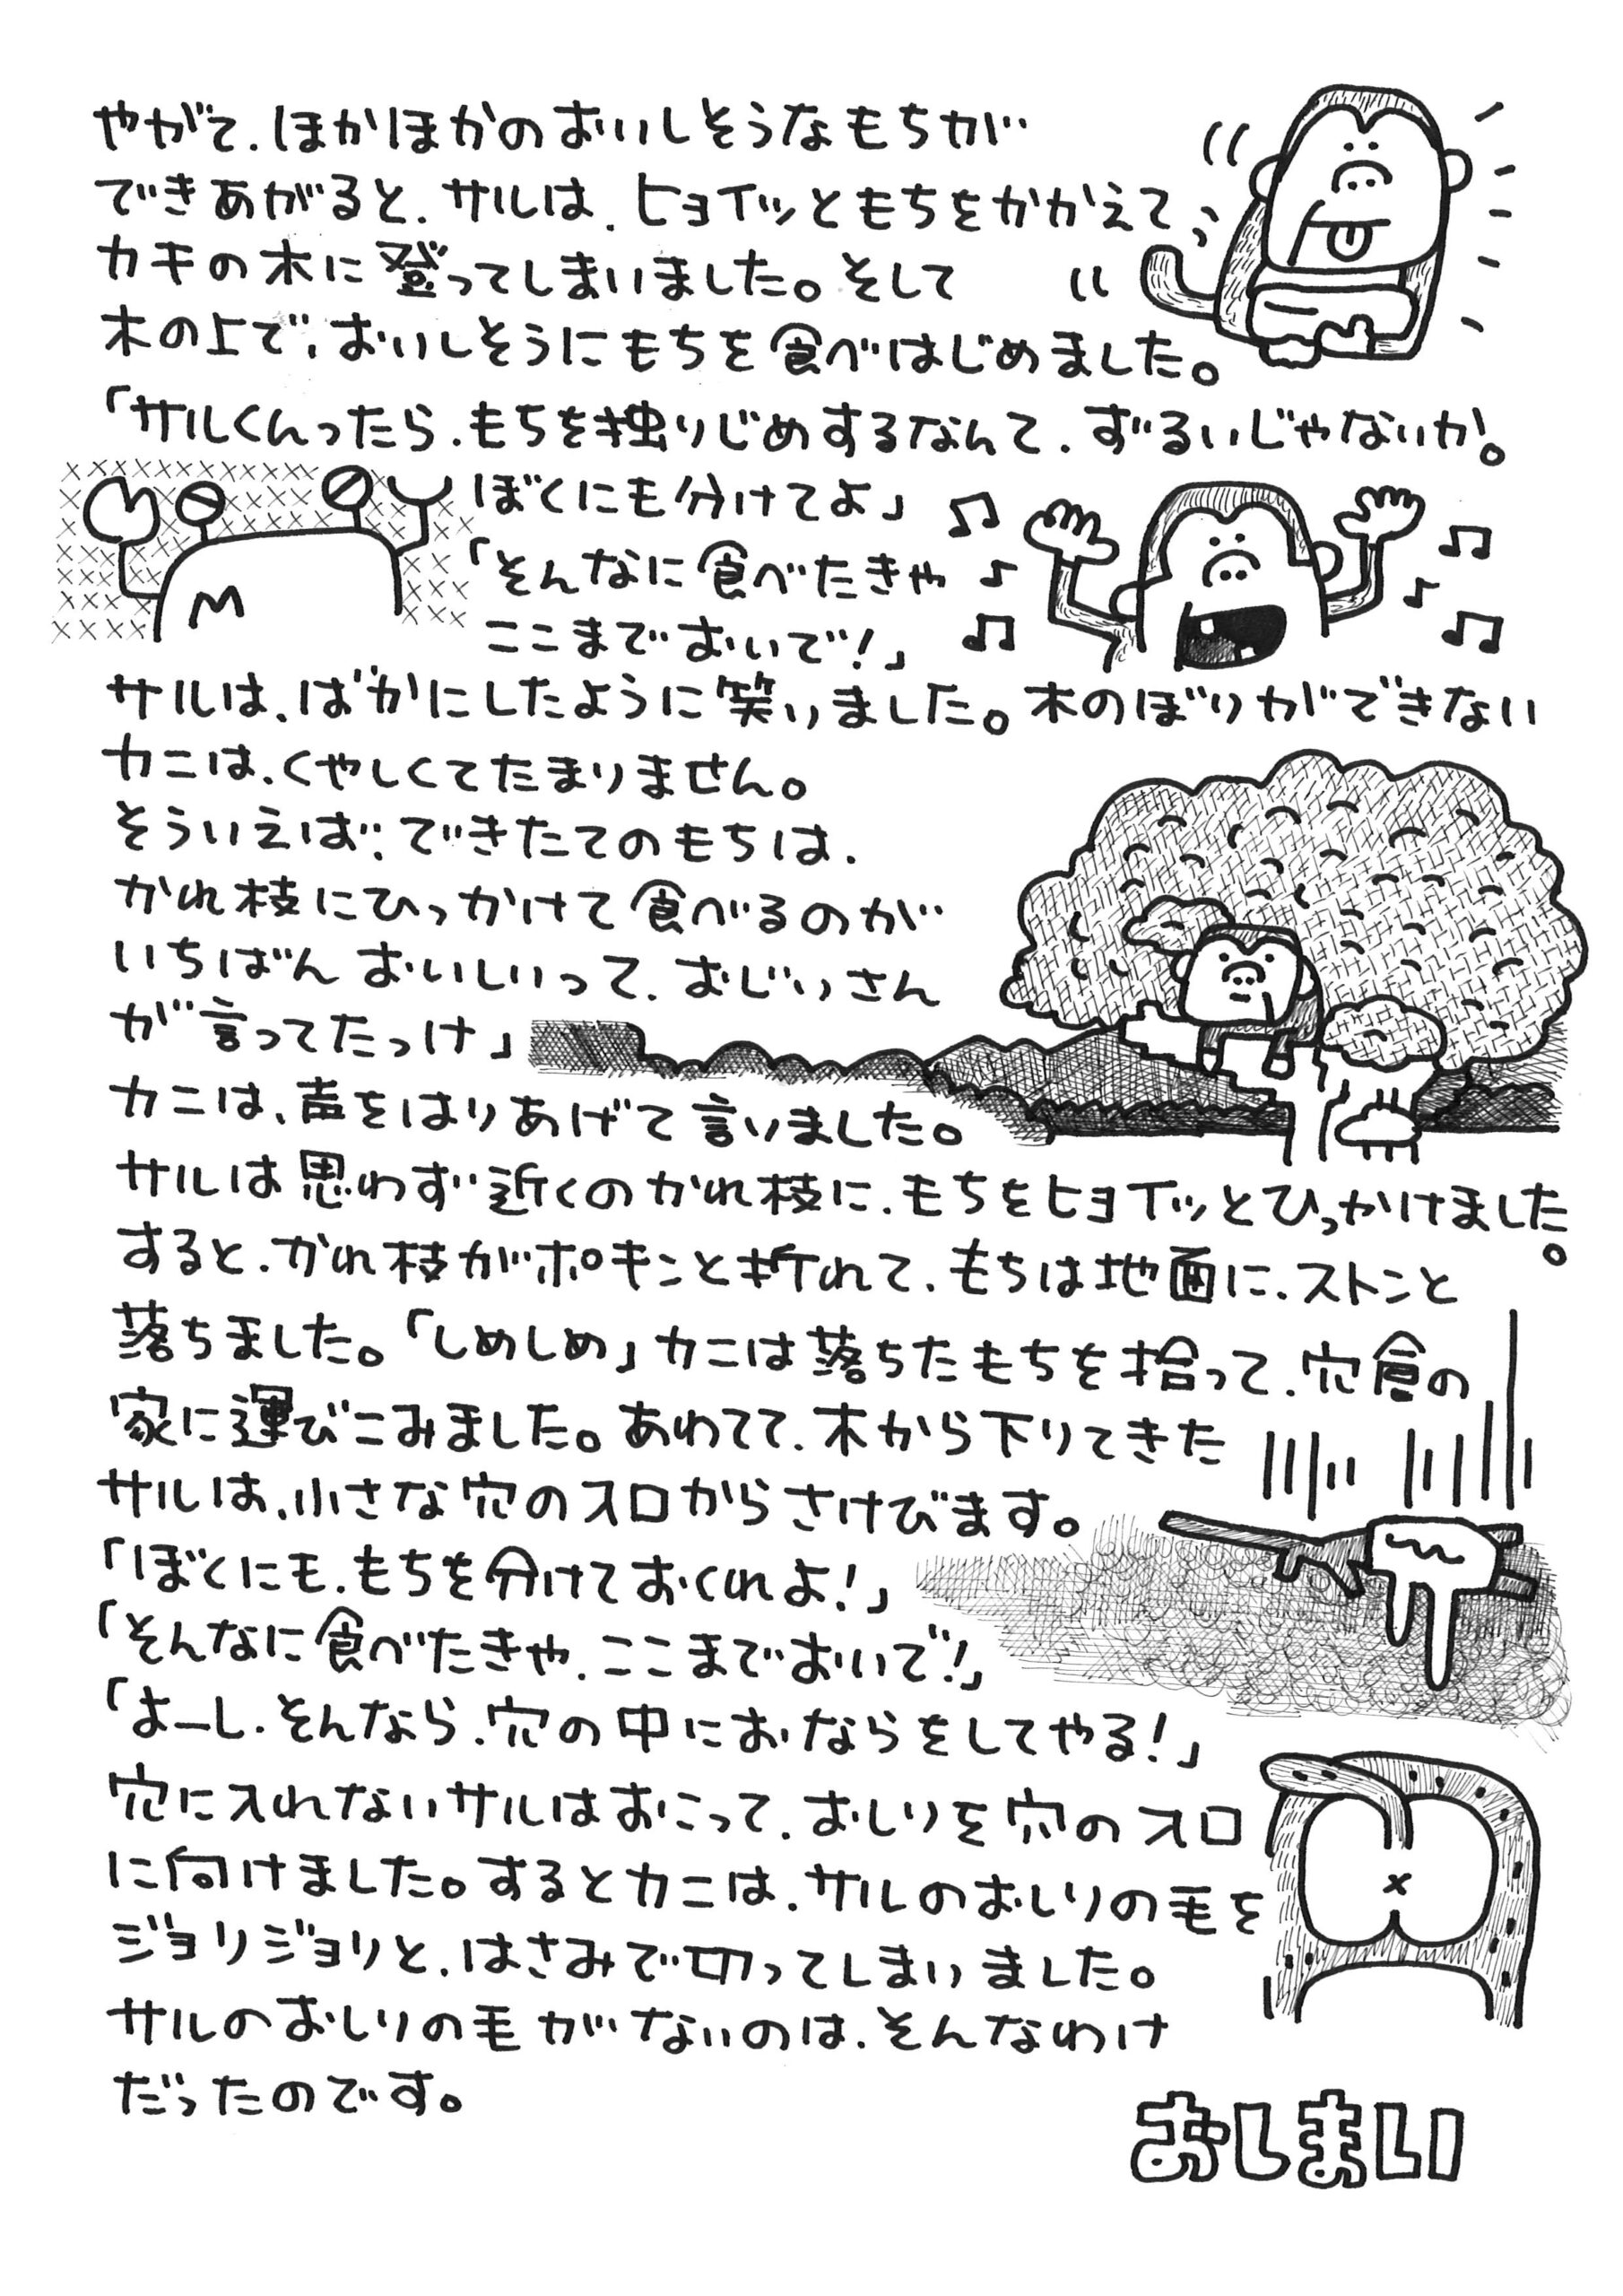 やがて、ほかほかのおいしそうなもちが
できあがると、サルは、ヒョイッともちをかかえて
カキの木に登ってしまいました。そして
木の上で、おいしそうにもちを食べはじめました。
「サルくんったら、もちを独りじめするなんて、ずるいじゃないか。
ぼくにも分けてよ」
「そんなに食べたきゃ
ここまでおいで！」
サルは、ばかにしたように笑いました。木のぼりができない
カニは、くやしくてたまりません。
そういえば、できたてのもちは、
かれ枝にひっかけて食べるのが
いちばんおいしいって、おじいさん
が言ってたっけ」
カニは、声をはりあげて言いました。
サルは思わず近くのかれ枝に、もちをヒョイッとひっかけました。
すると、かれ枝がポキンと折れて、もちは地面に、ストンと
落ちました。「しめしめ」カニは落ちたもちを拾って、穴倉の
家に運びこみました。あわてて、木から下りてきた
サルは、小さな穴の入口からさけびます。
「ぼくにも、もちを分けておくれよ！」
「そんなに食べたきゃ、ここまでおいで！」
「よーし、そんなら、穴の中におならをしてやる！」
穴に入れないサルはおこって、おしりを穴の入口
に向けました。するとカニは、サルのおしりの毛を
ジョリジョリと、はさみで切ってしまいました。
サルのおしりの毛がないのは、そんなわけ
だったのです。
おしまい